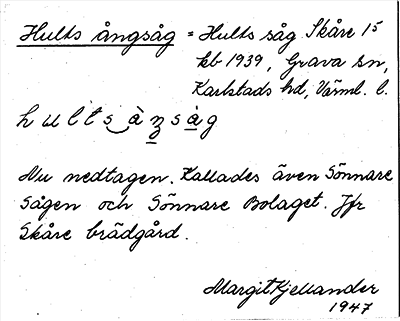 Hults ångsåg = Hults såg Skåre 15
kb 1939, Grava sn,
Karlstads hd, Värml. l.
hults àŋsàg
Nu nedtagen. Kallades även Sönnare
sågen och Sönnare Bolaget. Jfr
Skåre brädgård.
Margit Kjellander
1947